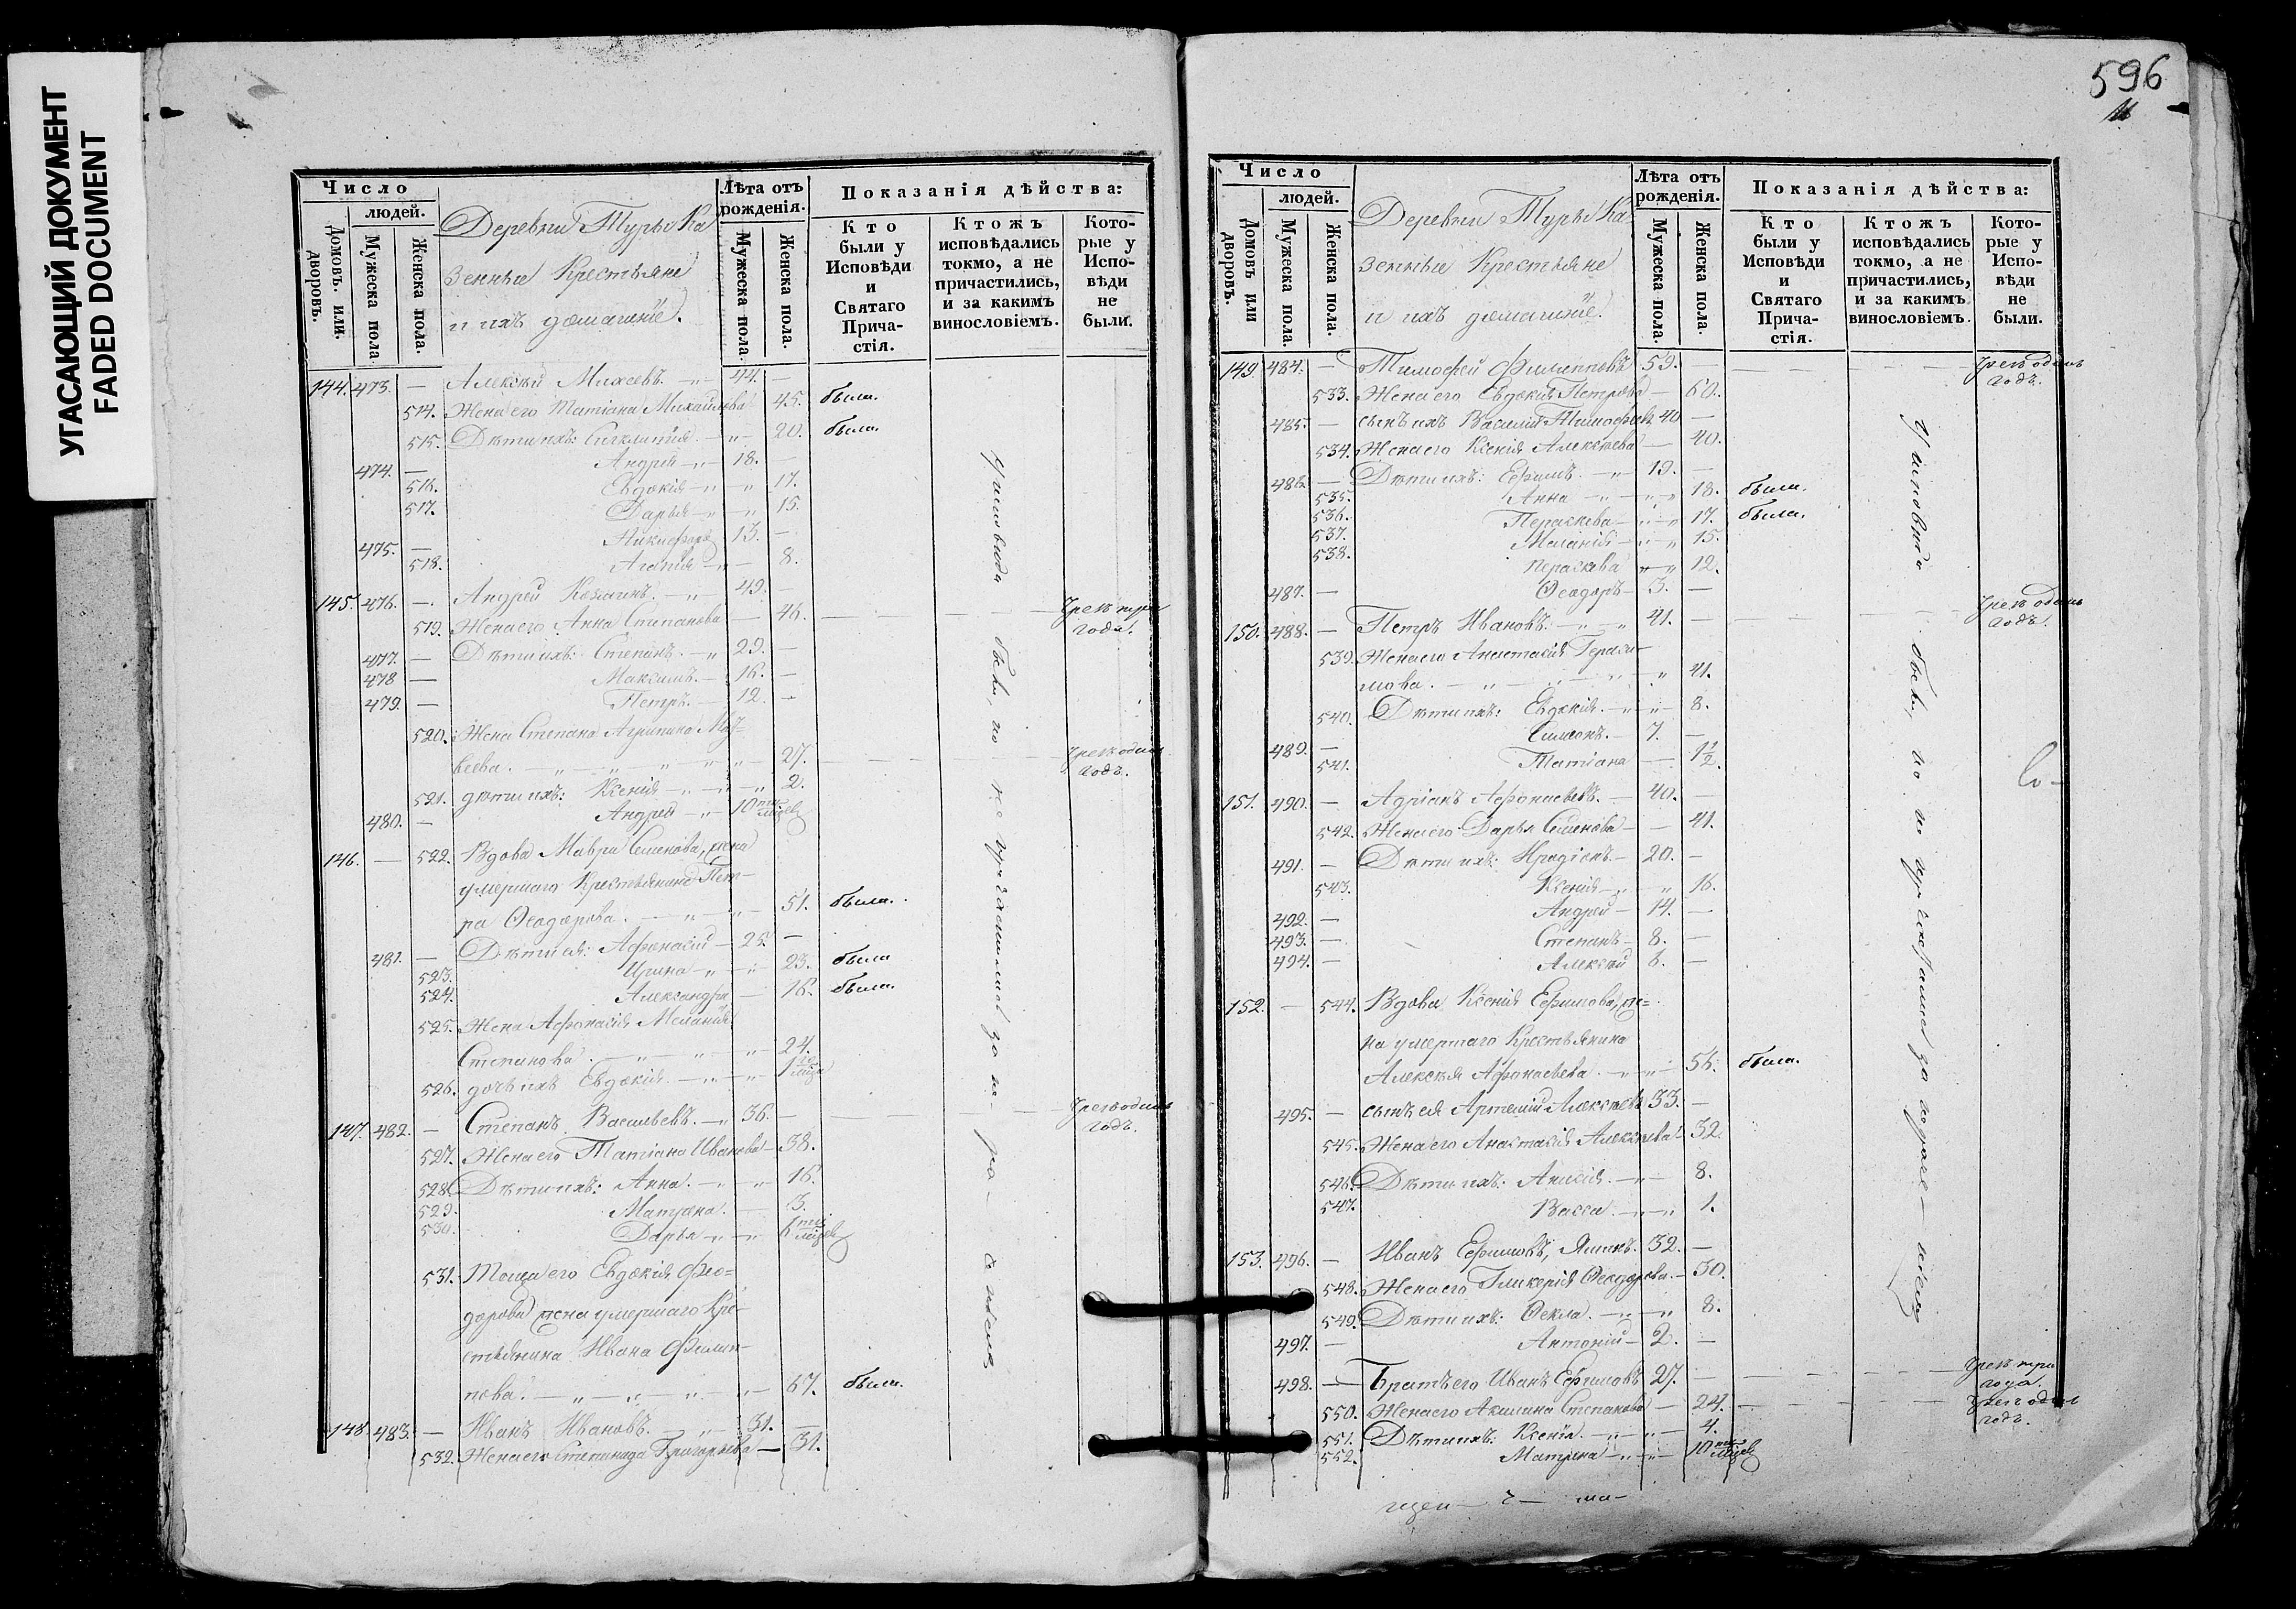 УГАСАЮЩИЙ ДОКУМЕНТ
FADED DOCUMENT
Число
людей.
Домовъ или дворовъ.
Мужеска пола
Женска пола.
Деревни Туры Ка
зенные Крестьяне
и ихъ домашніе.
Лѣта отъ рожденія.
Мужеска пола.
Женска пола.
Показанія дѣйства:
Кто были у Исповѣди и Святаго Причастія.
Ктожъ исповѣдались токмо, а не причастились, и за какимъ винословіемъ.
Которые у Исповѣди не были.
144. 473. — Алексѣй Михеевъ. 44. —
514. Жена его Татіана Михайлова 45. была.
515. Дѣти ихъ: Сигклитія. 20. была.
474. — Андрей 18. —
516. Евдокія 17.
517. Дарья 15.
475. — Никифоръ 13. —
518. Агапія 8.
145. 476. — Андрей Козминъ. 49. —
519. Жена его Анна Степанова 46. Чрезъ три года.
477. — Дѣти ихъ: Степанъ. 29. —
478 — Максимъ. 16. —
479. — Петръ. 12. —
520. Жена Степана Агрипина
27. Чрезъ одинъ годъ.
521. дѣти ихъ: Ксенія 2.
480. — Андрей 10
146. — 522. Вдова Мавра Семенова, жена
умершаго Крестьянина Пет-
ра Ѳеодорова. 51. была.
481. — Дѣти ея: Афонасій 25. —
523. Ирина 23. была
524. Александра 16. была.
525. Жена Афонасія Меланія
Степанова. 24.
526. дочь ихъ Евдокія. 1
147. 482. — Степанъ Васильевъ. 36. — Чрезъ одинъ годъ.
527. Жена его Татіана Иванова 38.
528. Дѣти ихъ: Анна. 16.
529. Матрона. 3.
530. Дарья 6
531. Тоща его Евдокія Фео-
дорова жена умершаго Кре-
стьянина Ивана Филип-
пова. 67. была.
148. 483. — Иванъ Ивановъ. 31. —
532. Жена его Степанида Григорьева — 31.
у исповѣди были, но не причастились за
596
Число
людей.
Домовъ или дворовъ.
Мужеска пола.
Женска пола.
Деревни Туры Ка
зенные Крестьяне
и ихъ домашніе.
Лѣта отъ рожденія.
Мужеска пола.
Женска пола.
Показанія дѣйства:
Кто были у Исповѣди и Святаго Причастія.
Ктожъ исповѣдались токмо, а не причастились, и за какимъ винословіемъ.
Которые у Исповѣди не были.
149. 484. — Тимофей Филипповъ 59. — Чрезъ одинъ годъ.
533. Жена его Евдокія Петрова — 60.
485. — сынъ ихъ Василій Тимофеевъ 40 —
534. Жена его Ксенія Алексѣева — 40.
486. — Дѣти ихъ: Ефимъ. 19. —
535. Анна 18. была.
536. Параскева 17. была.
537. Меланія 15.
538. Параскева 12.
487. — Ѳеодоръ 3. —
150. 488. — Петръ Ивановъ. 41. — Чрезъ одинъ годъ.
539. Жена его Анастасія Гераси-
мова. 41.
540. Дѣти ихъ: Евдокія. 8.
489. — Симеонъ. 7. —
541. Татіана — 1½.
151. 490. — Адріанъ Афонасьевъ. 40. —
542. Жена его Дарья Семенова — 41.
491. — Дѣти ихъ: Иродіонъ. 20. —
543. Ксенія 16.
492. — Андрей 14. —
493. — Степанъ 8. —
494. — Алексѣй 6. —
152. — 544. Вдова Ксенія Ефимова, же-
на умершаго Крестьянина
Алексѣя Афонасьева. 56. была.
495. — сынъ ея Артемій Алексѣевъ 33. —
545. Жена его Анастасія Алексѣева 32.
546. Дѣти ихъ: Анисія. 8.
547. Васса. 1.
153. 496. — Иванъ Ефимовъ, 32. —
548. Жена его Гликерія Ѳеодорова. — 30.
549. Дѣти ихъ: Ѳекла. 8.
497. — Антоній 2. —
498. — Братъ его Иванъ Ефимовъ 27. — Чрезъ три года.
550. Жена его Акилина Степанова — 24. Чрезъ одинъ годъ.
551. Дѣти ихъ: Ксенія. 4.
552. Матрона 10
у исповѣди были, но не причастились за